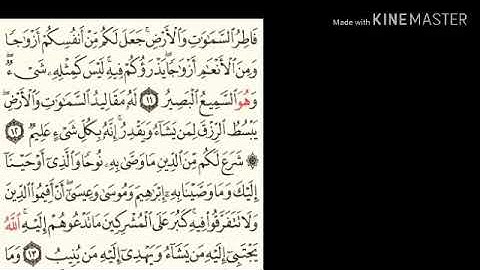 Made with KINEMASTER
فَاطِرُ ٱلسَّمَٰوَٰتِ وَٱلْأَرْضِ ۚ جَعَلَ لَكُم مِّنْ أَنفُسِكُمْ أَزْوَٰجًا
وَمِنَ ٱلْأَنْعَٰمِ أَزْوَٰجًا ۖ يَذْرَؤُكُمْ فِيهِ ۚ لَيْسَ كَمِثْلِهِۦ شَىْءٌ ۖ
وَهُوَ ٱلسَّمِيعُ ٱلْبَصِيرُ ١١ لَهُۥ مَقَالِيدُ ٱلسَّمَٰوَٰتِ وَٱلْأَرْضِ ۖ
يَبْسُطُ ٱلرِّزْقَ لِمَن يَشَآءُ وَيَقْدِرُ ۚ إِنَّهُۥ بِكُلِّ شَىْءٍ عَلِيمٌ ١٢
۞ شَرَعَ لَكُم مِّنَ ٱلدِّينِ مَا وَصَّىٰ بِهِۦ نُوحًا وَٱلَّذِىٓ أَوْحَيْنَآ
إِلَيْكَ وَمَا وَصَّيْنَا بِهِۦٓ إِبْرَٰهِيمَ وَمُوسَىٰ وَعِيسَىٰٓ ۖ أَنْ أَقِيمُوا۟ ٱلدِّينَ
وَلَا تَتَفَرَّقُوا۟ فِيهِ ۚ كَبُرَ عَلَى ٱلْمُشْرِكِينَ مَا تَدْعُوهُمْ إِلَيْهِ ۚ ٱللَّهُ
يَجْتَبِىٓ إِلَيْهِ مَن يَشَآءُ وَيَهْدِىٓ إِلَيْهِ مَن يُنِيبُ ١٣ وَمَا